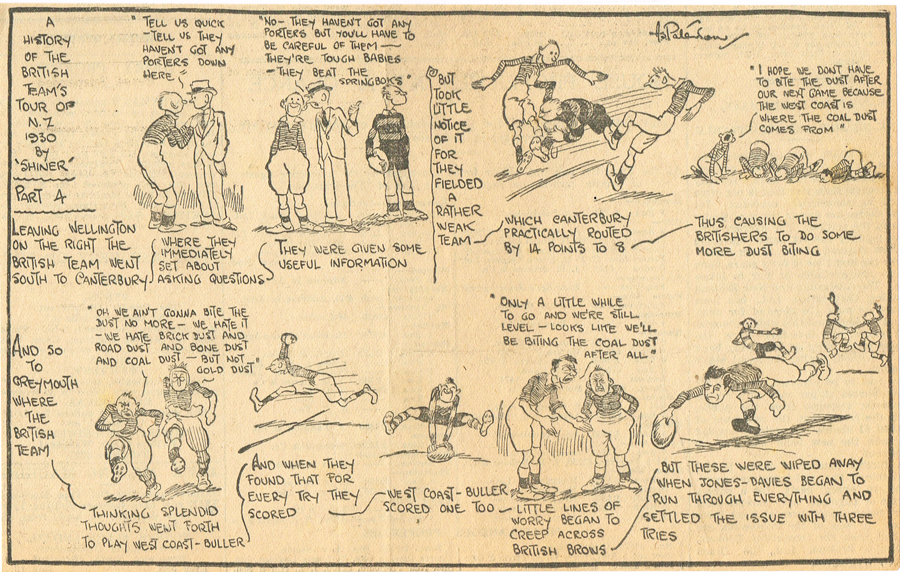 A
HISTORY
OF THE
BRITISH
TEAM'S
TOUR OF
N.Z
1930
BY
"SHINER"
PART 4
LEAVING WELLINGTON
ON THE RIGHT THE
BRITISH TEAM WENT
SOUTH TO CANTERBURY
"TELL US QUICK
- TELL US THEY
HAVEN'T GOT ANY
PORTERS DOWN
HERE"
WHERE THEY
IMMEDIATELY
SET ABOUT
ASKING QUESTIONS
"NO - THEY HAVEN'T GOT ANY
PORTERS BUT YOU'LL HAVE TO
BE CAREFUL OF THEM -
THEY'RE TOUGH BABIES
- THEY BEAT THE
SPRINGBOKS"
THEY WERE GIVEN SOME
USEFUL INFORMATION
BUT
TOOK
LITTLE
NOTICE
OF IT
FOR
THEY
FIELDED
A
RATHER
WEAK
TEAM
WHICH CANTERBURY
PRACTICALLY ROUTED
BY 14 POINTS TO 8
"I HOPE WE DON'T HAVE
TO BITE THE DUST AFTER
OUR NEXT GAME BECAUSE
THE WEST COAST IS
WHERE THE COAL DUST
COMES FROM"
THUS CAUSING THE
BRITISHERS TO DO SOME
MORE DUST BITING
AND SO
TO
GREYMOUTH
WHERE
THE
BRITISH
TEAM
"OH WE AIN'T GONNA BITE THE
DUST NO MORE - WE HATE IT
- WE HATE BRICK DUST AND
ROAD DUST AND BONE DUST
AND COAL DUST - BUT NOT
GOLD DUST"
THINKING SPLENDID
THOUGHTS WENT FORTH
TO PLAY WEST COAST-BULLER
AND WHEN THEY
FOUND THAT FOR
EVERY TRY THEY
SCORED
WEST COAST-BULLER
SCORED ONE TOO
"ONLY A LITTLE WHILE
TO GO AND WE'RE STILL
LEVEL - LOOKS LIKE WE'LL
BE BITING THE COAL DUST
AFTER ALL"
LITTLE LINES OF
WORRY BEGAN TO
CREEP ACROSS
BRITISH BROWS
BUT THESE WERE WIPED AWAY
WHEN JONES-DAVIES BEGAN TO
RUN THROUGH EVERYTHING AND
SETTLED THE ISSUE WITH THREE
TRIES